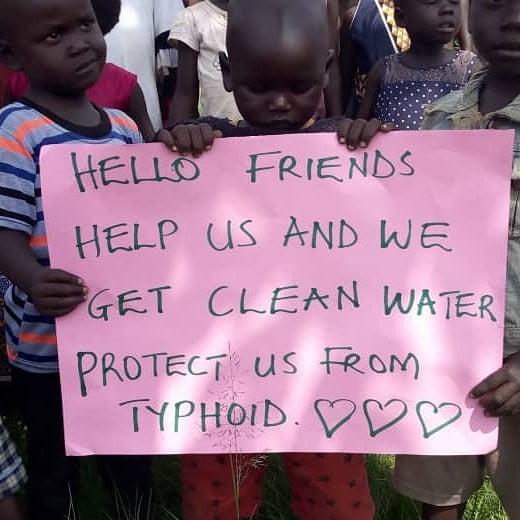 HELLO FRIENDS
HELP US AND WE
GET CLEAN WATER
PROTECT US FROM
TYPHOID. ♡♡♡